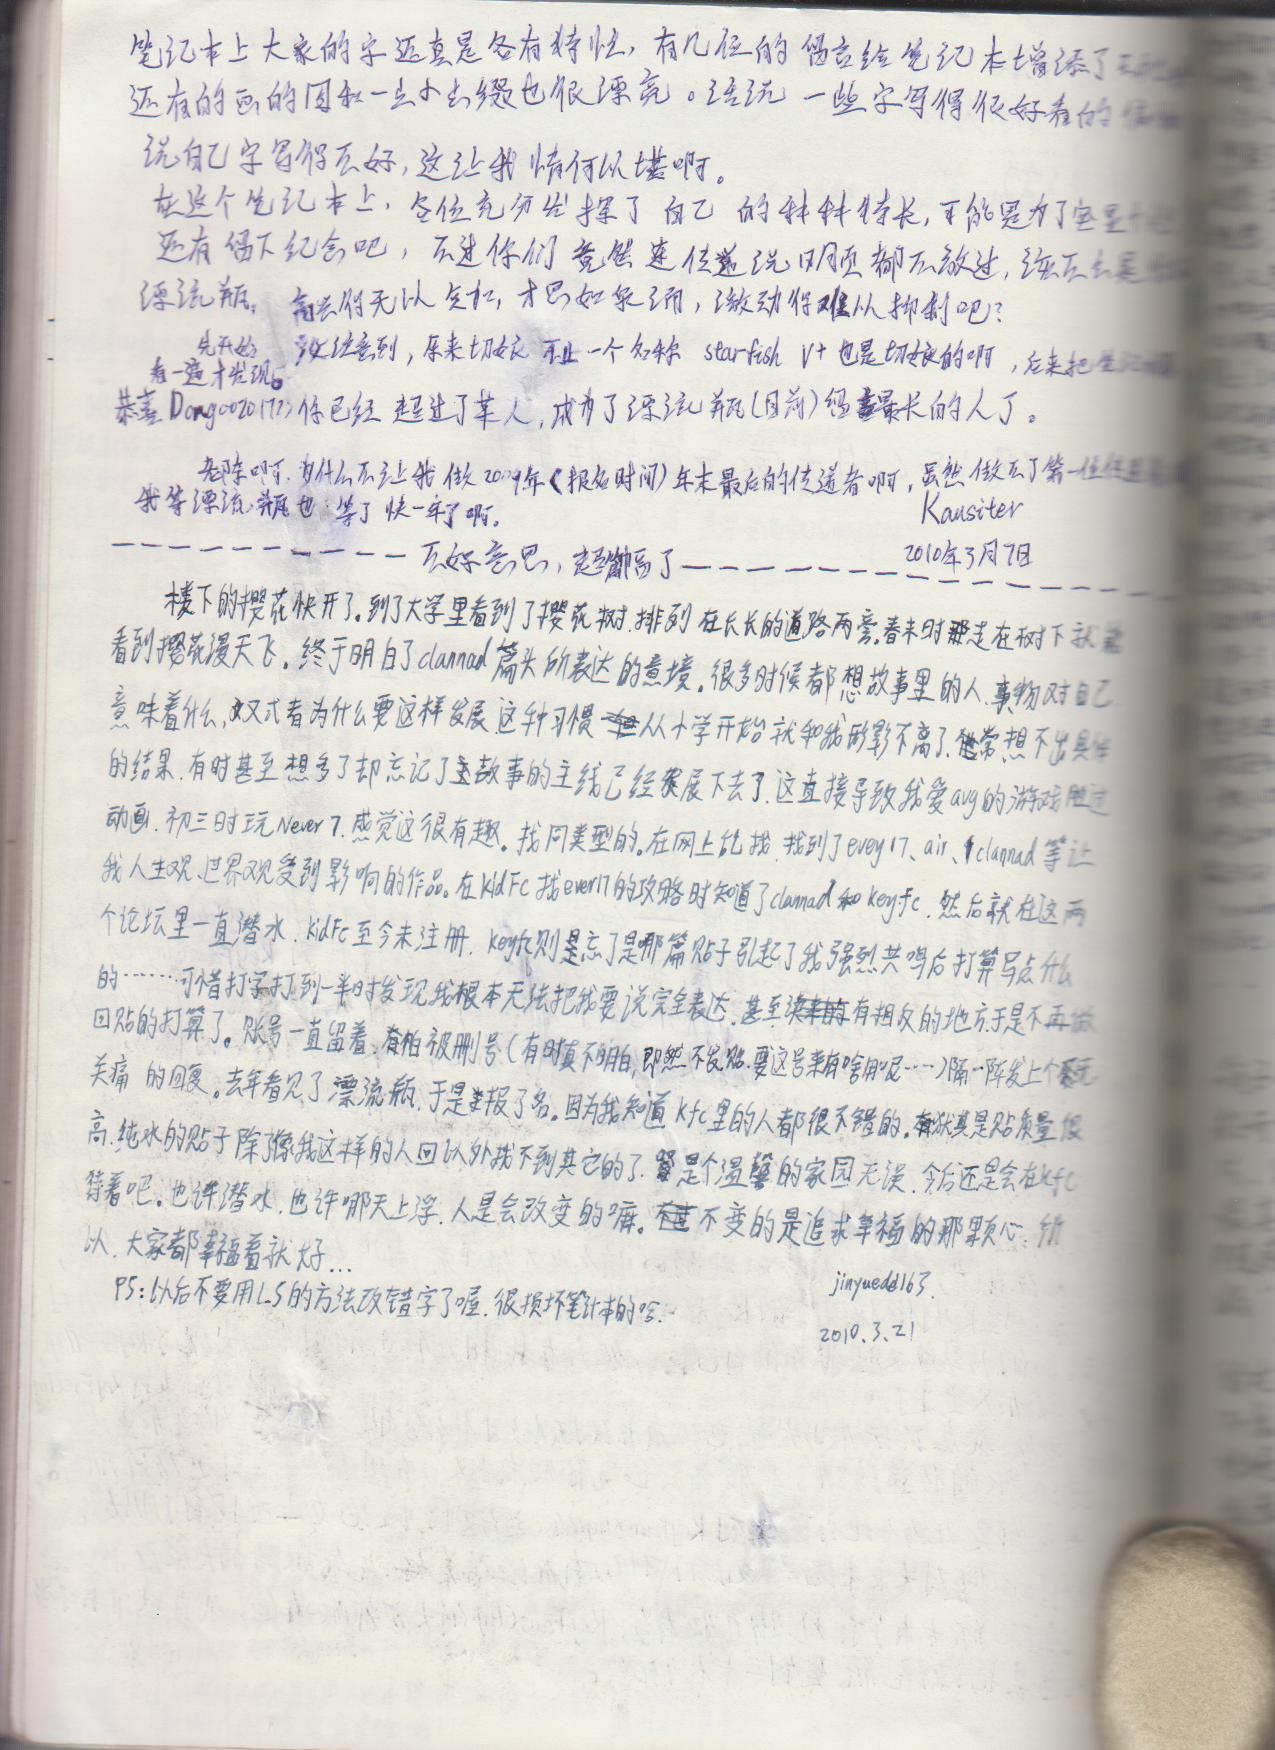 笔记本上大家的字还真是各有特性，有几位的留言给笔记本增添了
还有的画的图和一点小点缀也很漂亮。话说 一些字写得很好看的
说自己字写得不好，这让我情何以堪啊。
在这个笔记本上，各位充分发挥了自己的种种特长，可能是为了
还有留下纪念吧，不过你们竟然连传递说明页都不放过，
漂流瓶，高兴得无以复加，才思如泉涌，激动得难以抑制吧？
先开始 没注意到，原来切娘不止一个名称 starfish v+ 也是切娘的啊，后来把
看一遍才发现。
恭喜Dongoo201723你已经超过了某人，成为了漂流瓶(目前)留言最长的人了。
老陈啊，为什么不让我做2009年(报名时间)年末最后的传递者啊，虽然做不了第一位
我等漂流瓶也等了快一年了啊。
Kausiter
不好意思，超编辑了 2010年3月7日
楼下的樱花快开了。到了大学里看到了樱花树.排列在长长的道路两旁.春来时走在树下就能
看到樱花漫天飞。终于明白了clannad篇头所表达的意境。很多时候都想故事里的人.事物对自己
意味着什么,又或者为什么要这样发展.这种习惯从小学开始就和我形影不离了.常想不出具体
的结果.有时甚至想多了却忘记了故事的主线已经发展下去了.这直接导致我爱avg的游戏胜过
动画.初三时玩Never7.感觉这很有趣。找同类型的。在网上乱找.找到了evey17、air、clannad等让
我人生观.世界观受到影响的作品。在kidfc找ever17的攻略时知道了clannad和keyfc.然后就在这两
个论坛里一直潜水.kidfc至今未注册.keyfc则是忘了是哪篇贴子引起了我强烈共鸣后打算写点什么
的……可惜打字打到一半时发现我根本无法把我要说完全表达.甚至有相反的地方.于是不再做
回贴的打算了。账号一直留着.怕被删号(有时真不明白,即然不发贴.要这号来有啥用呢……)隔一阵发上个无
关痛 的回复。去年看见了漂流瓶.于是报了名。因为我知道kfc里的人都很不错的。尤其是贴质量很
高.纯水的贴子除了像我这样的人回以外找不到其它的了.是个温馨的家园无误.今后还是会在kfc
待着吧。也许潜水.也许哪天上浮.人是会改变的嘛。不变的是追求幸福的那颗心.所
以.大家都幸福着就好...
jinyuedd163.
PS:以后不要用LS的方法改错字了喔.很损坏笔计本的哈.
2010.3.21